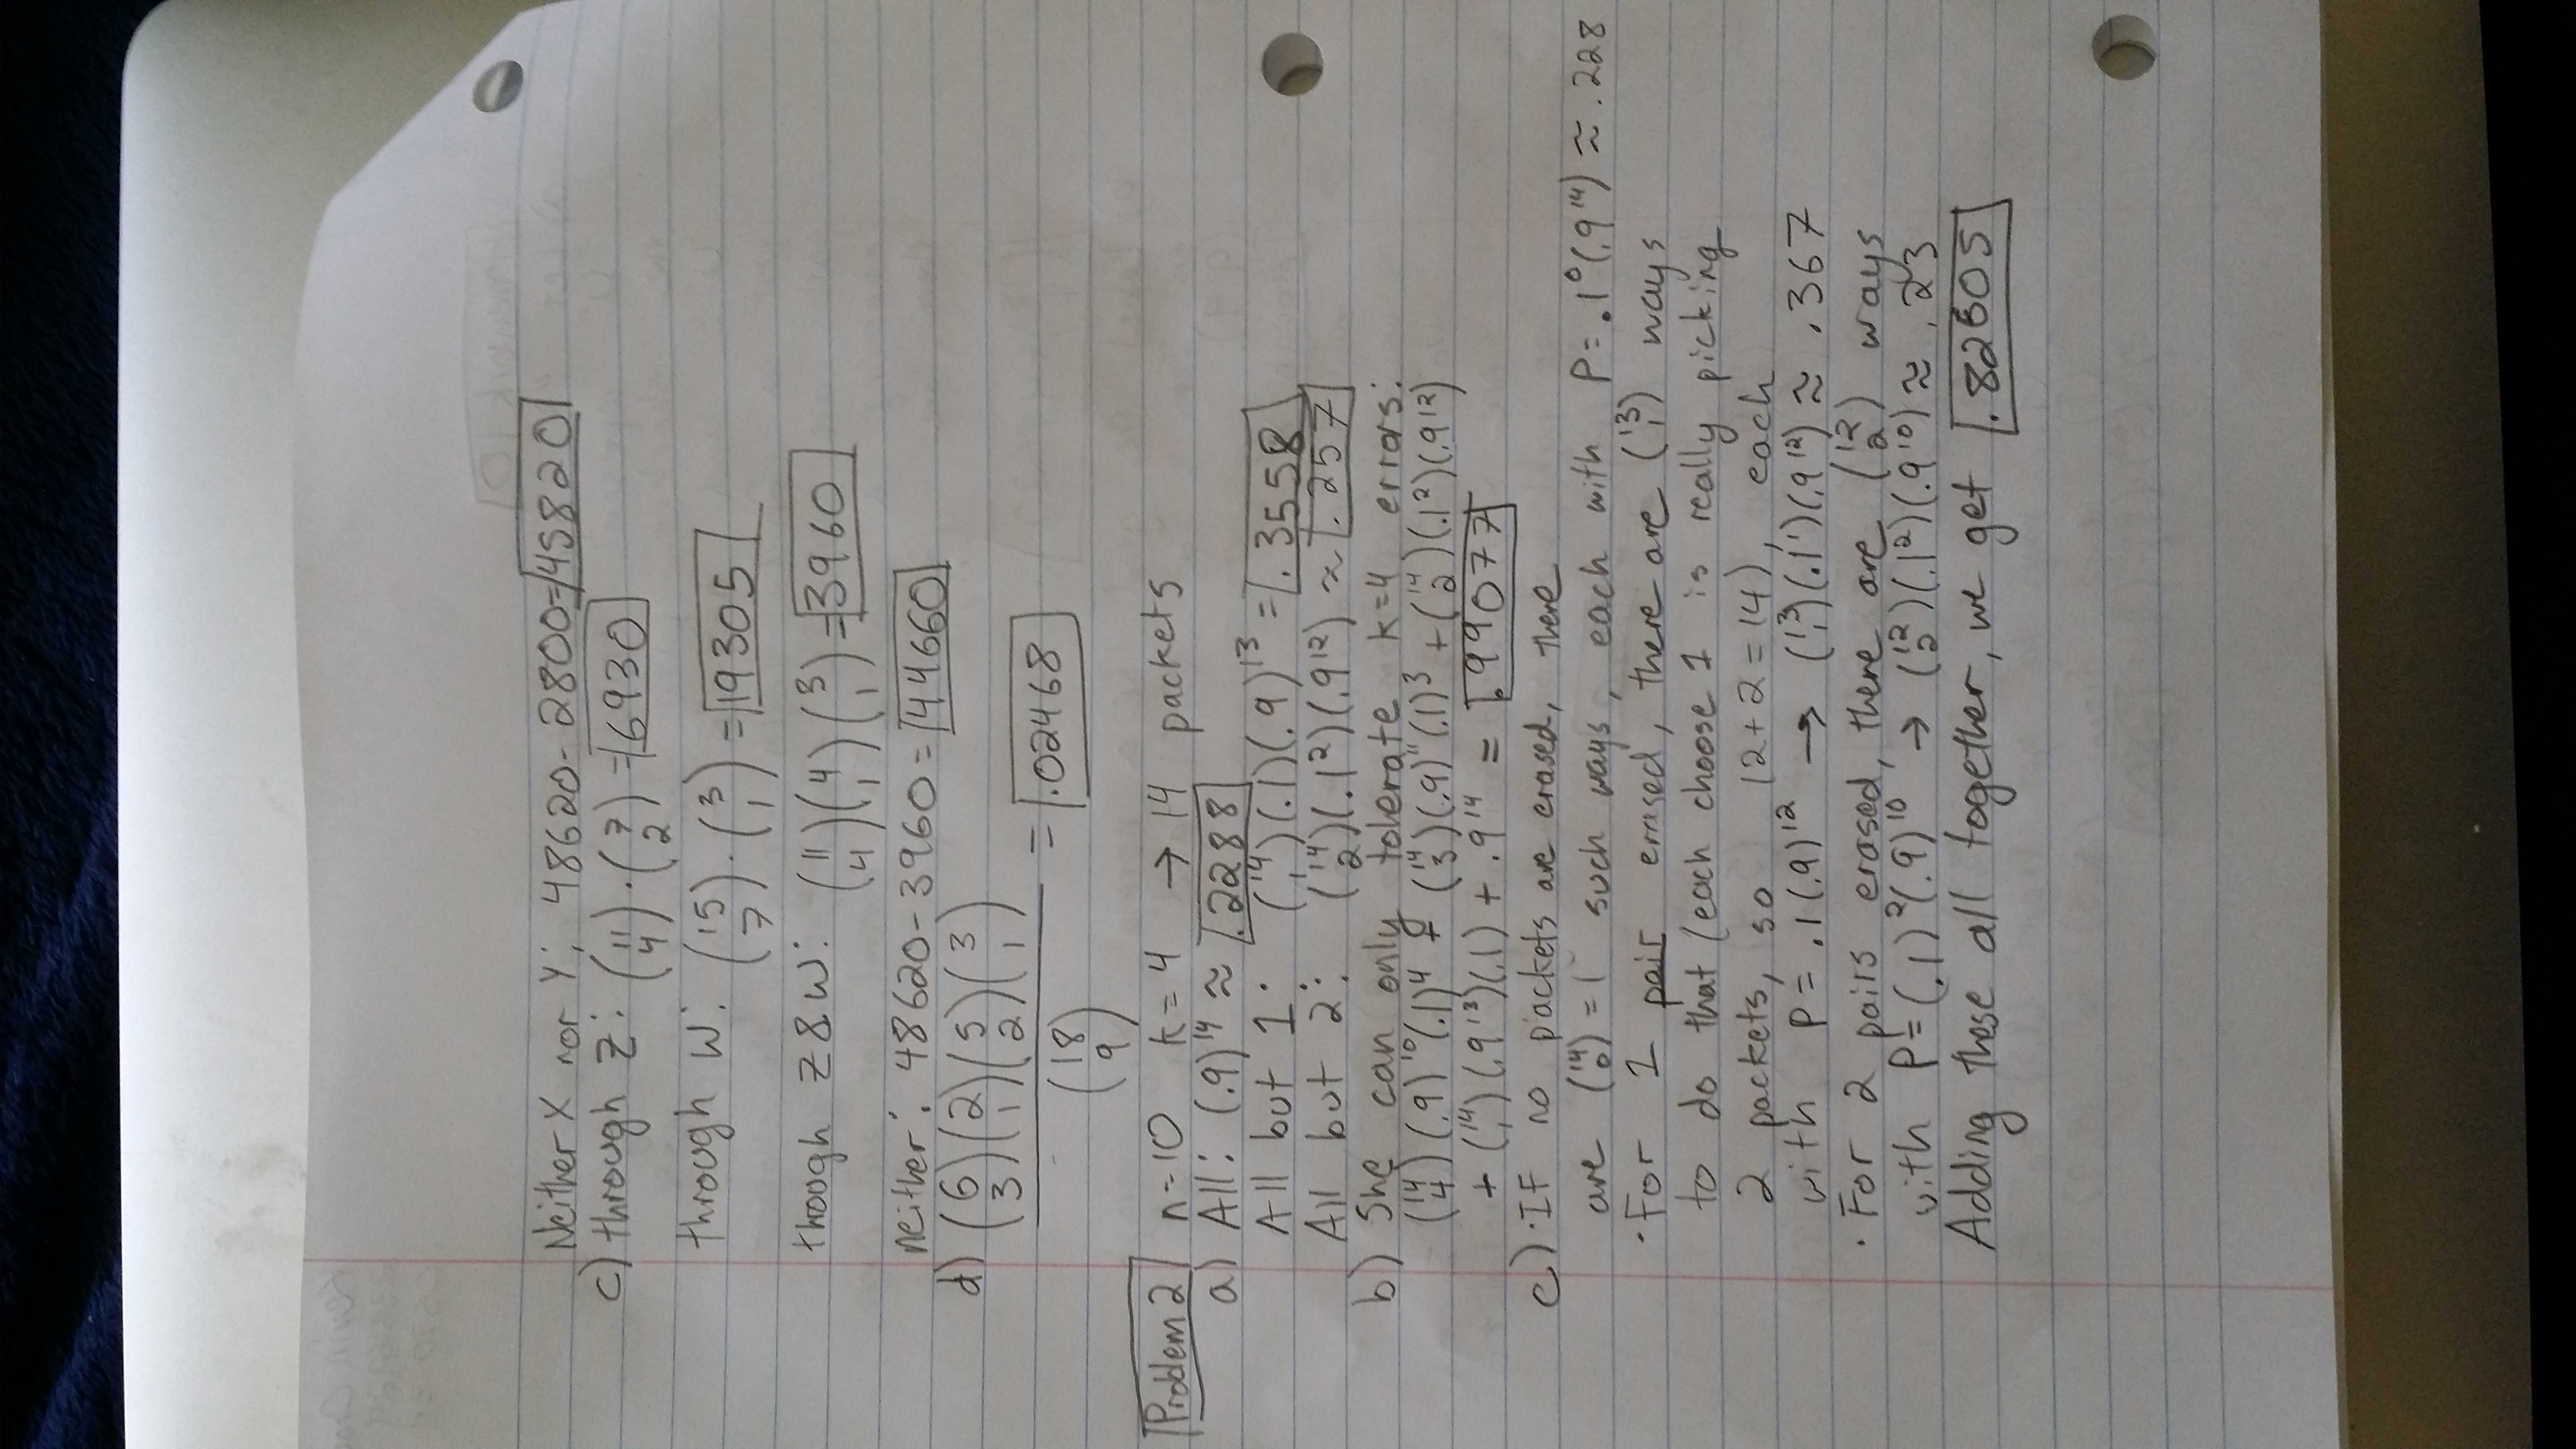 Neither X nor Y: 48620 - 2800 = 45820
c) through Z: (11 4) · (7 2) = 6930
through W: (15 7) · (3 1) = 19305
though Z & W: (11 4)(4 1)(3 1) = 3960
neither: 48620 - 3960 = 44660
d) (6 3)(2 1)(5 2)(3 1) / (18 9) = .02468
Problem 2 n=10 k=4 → 14 packets
a) All: (.9)^14 ≈ .2288
All but 1: (14 1)(.1)(.9)^13 = .3558
All but 2: (14 2)(.1^2)(.9^12) ≈ .257
b) She can only tolerate k=4 errors:
(14 4)(.9)^10(.1)^4 + (14 3)(.9)^11(.1)^3 + (14 2)(.1^2)(.9^12)
+ (14 1)(.9^13)(.1) + .9^14 = .99077
c) · If no packets are erased, there
are (14 0) = 1 such ways, each with P = .1^0(.9^14) ≈ .228
· For 1 pair erased, there are (13 1) ways
to do that (each choose 1 is really picking
2 packets, so 12+2=14), each
with P = .1(.9)^12 → (13 1)(.1^1)(.9^12) ≈ .367
· For 2 pairs erased, there are (12 2) ways
with P = (.1)^2(.9)^10 → (12 2)(.1^2)(.9^10) ≈ .23
Adding these all together, we get .82605